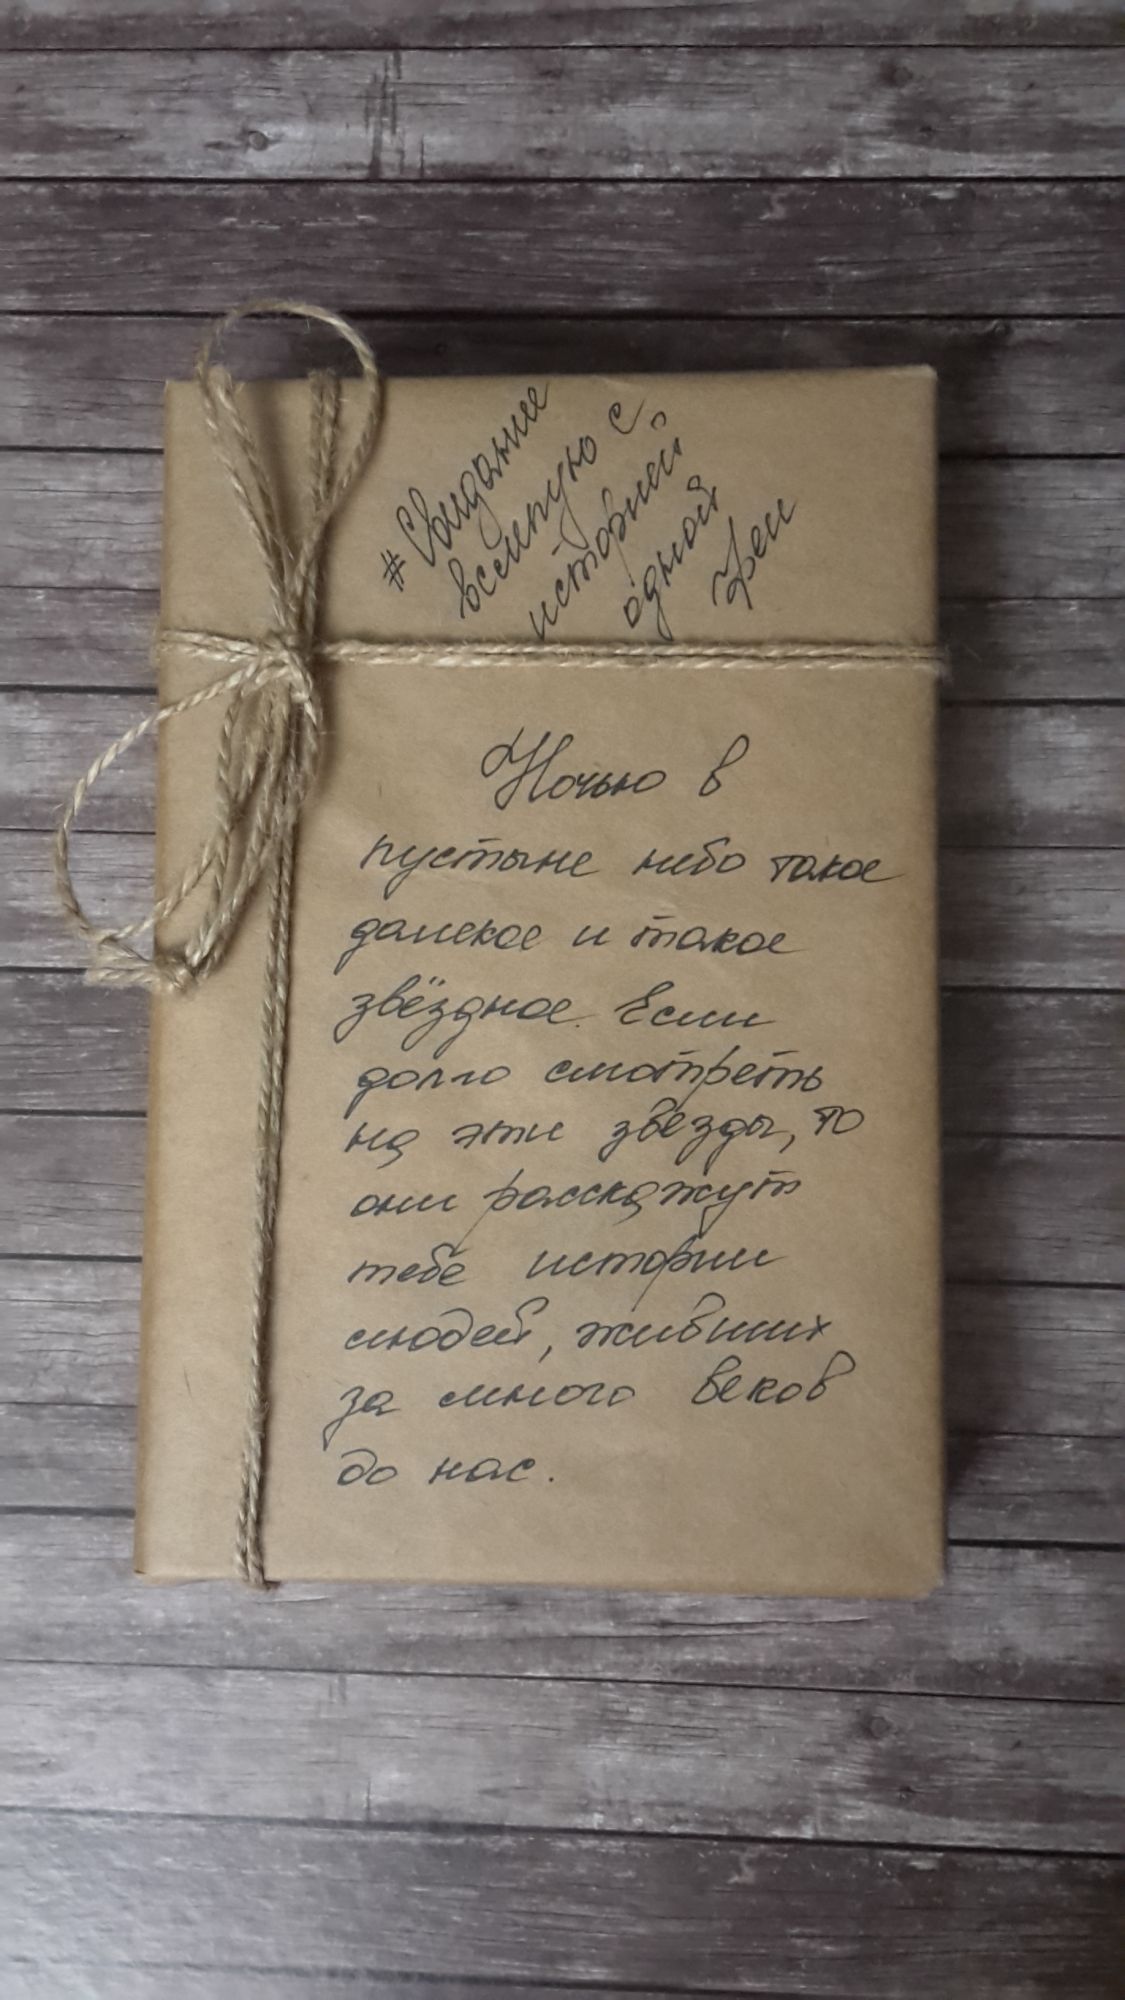 #Свидание
вслепую с
историей
одной
феи
Ночью в
пустыне небо такое
далекое и такое
звёздное. Если
долго смотреть
на эти звезды, то
они расскажут
тебе истории
людей, живших
за много веков
до нас.